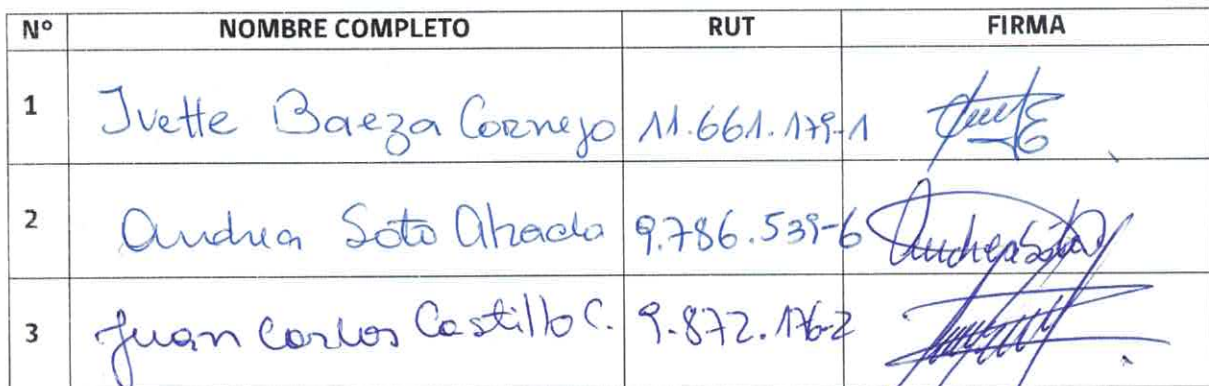 Nº NOMBRE COMPLETO RUT FIRMA
1 Ivette Baeza Cornejo 11.661.179-1
2 Andrea Soto Ahzada 9.786.539-6 Andrea Soto
3 Juan Carlos Castillo C. 9.872.176-2